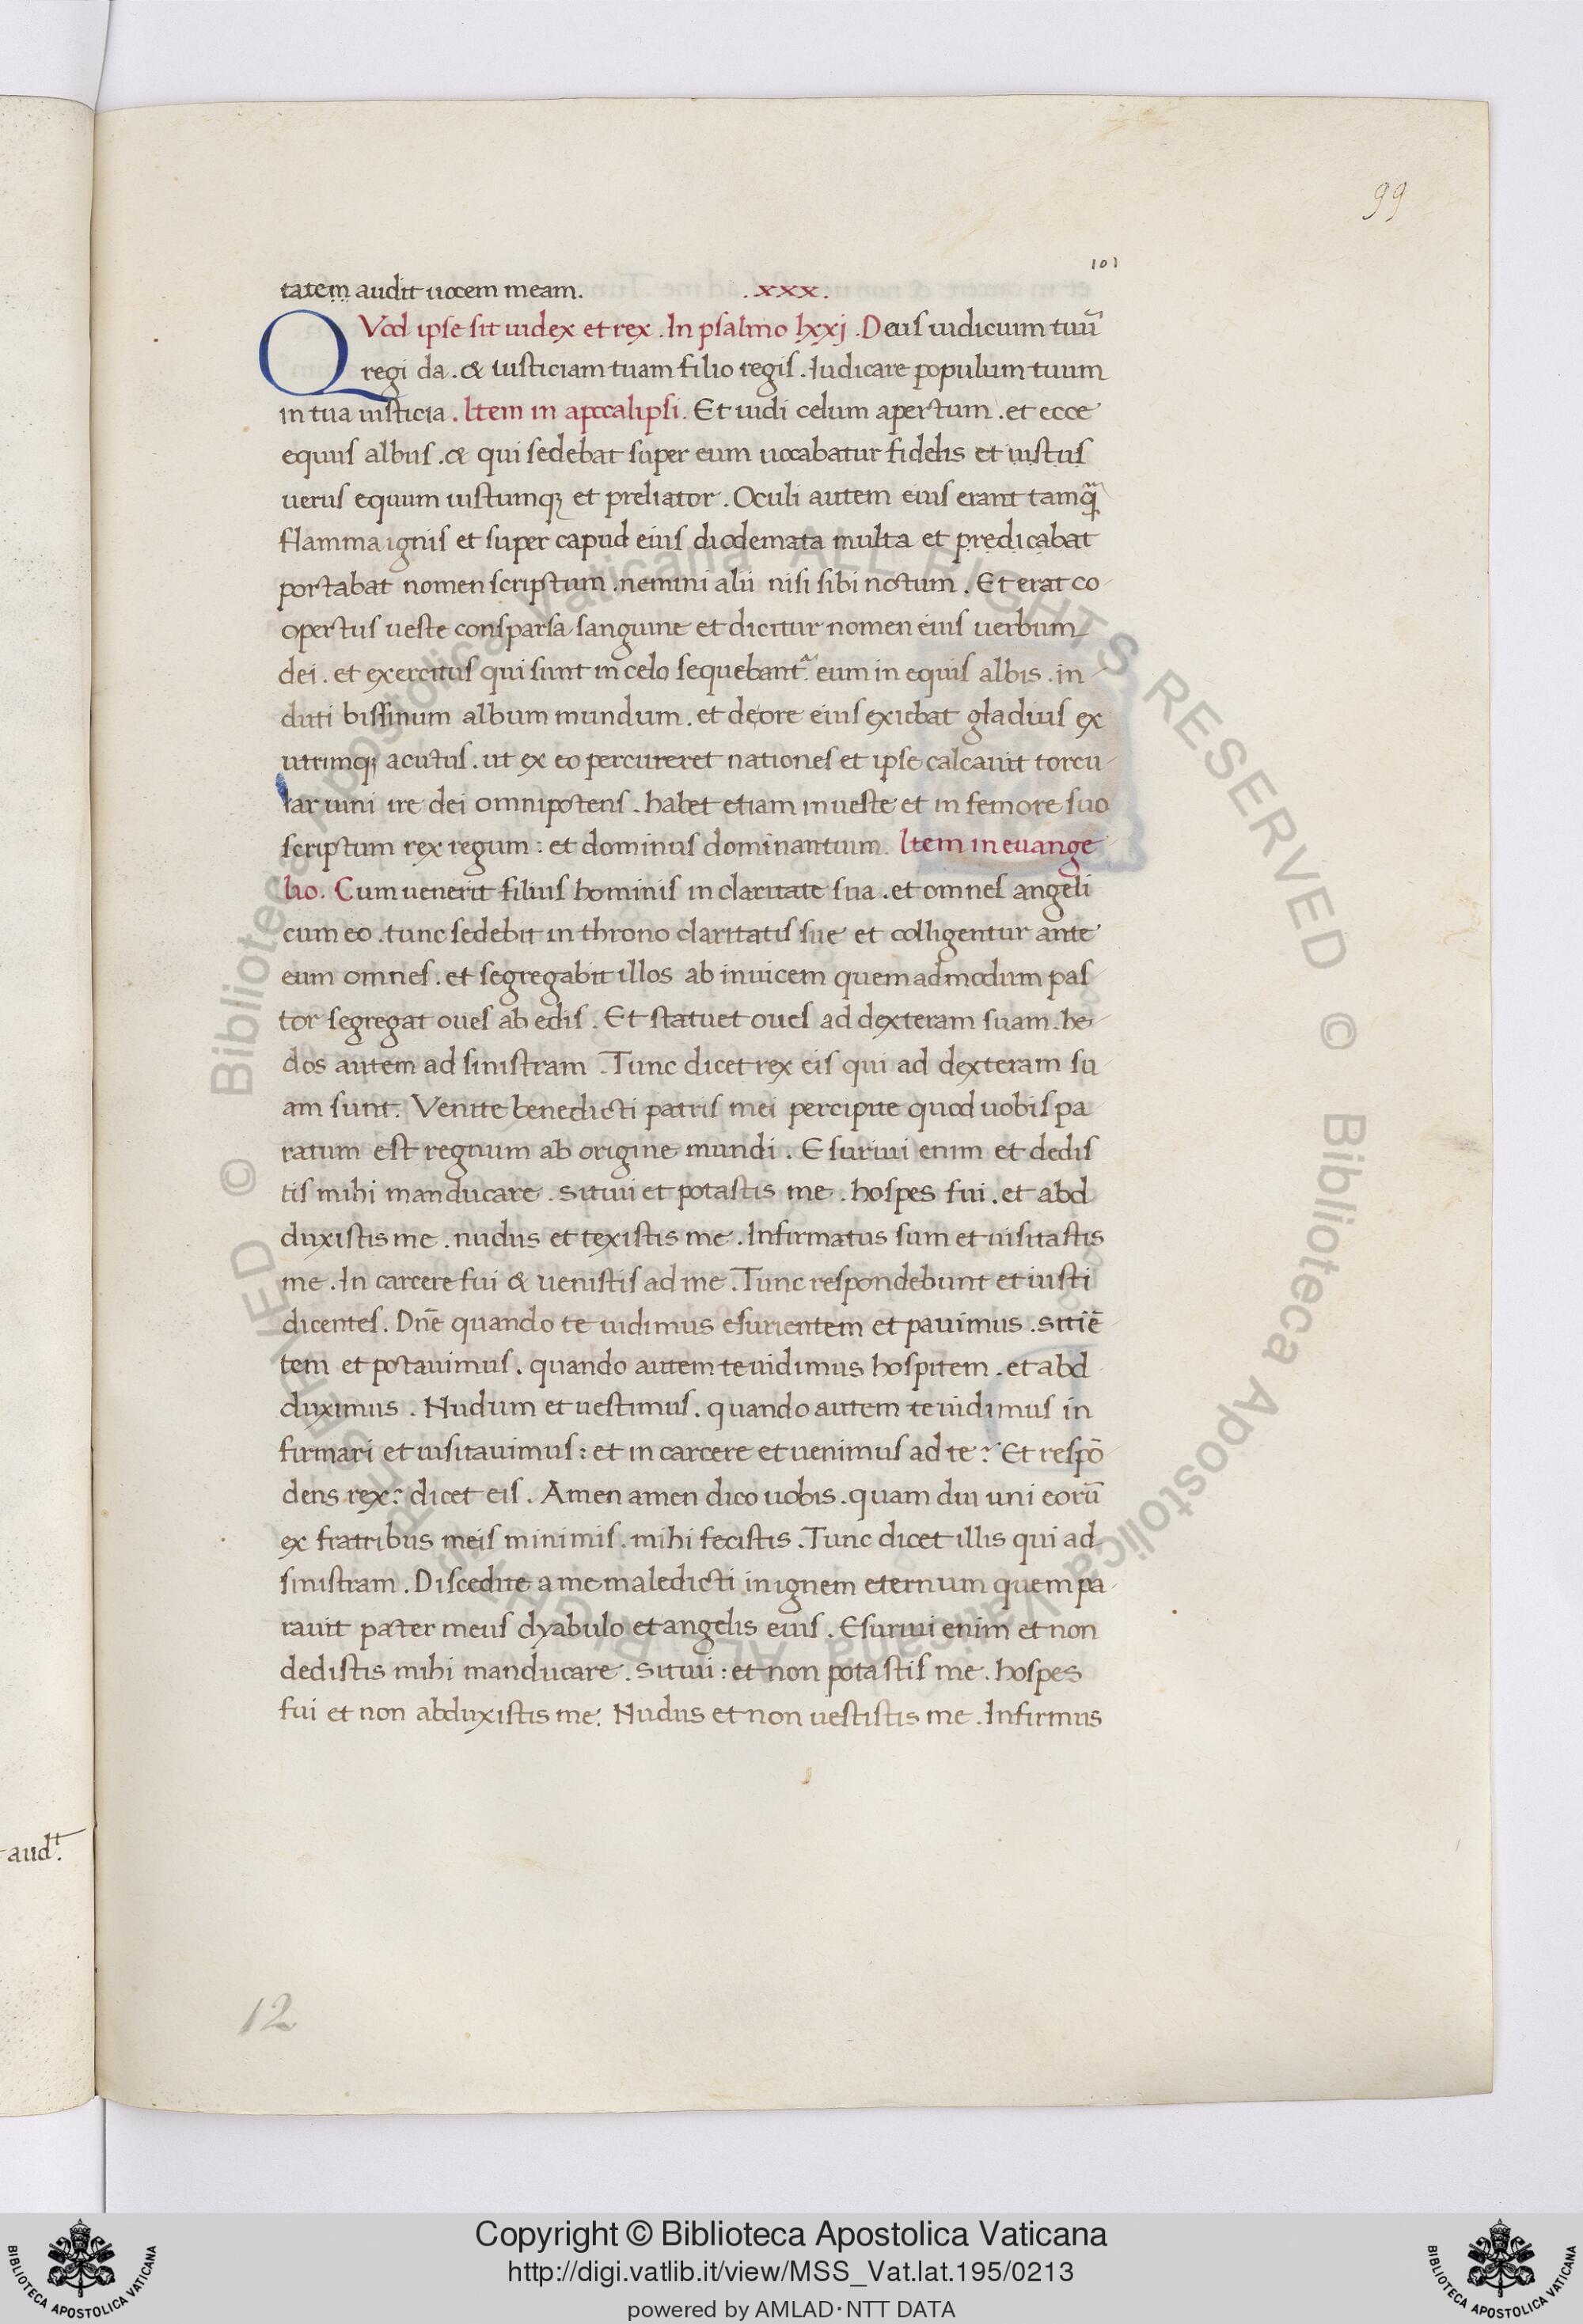 99
101
tatem audit uocem meam. .xxx.
QVod ipse sit iudex et rex. In psalmo lxxj. Deus iudicium tuū
regi da. & iusticiam tuam filio regis. Iudicare populum tuum
in tua iusticia. Item in apocalipsi. Et uidi celum apertum. et ecce
equus albus. & qui sedebat super eum uocabatur fidelis et iustus
uerus equum iustumqꝫ et preliator. Oculi autem eius erant tamq̃
flamma ignis et super capud eius diodemata multa et predicabat
portabat nomen scriptum. nemini alii nisi sibi notum. Et erat co
opertus ueste consparsa sanguine et dicitur nomen eius uerbum
dei. et exercitus qui sunt in celo sequebant᷑ eum in equis albis. in
duti bissinum album mundum. et de ore eius exiebat gladius ex
utrimqꝫ acutus. ut ex eo percuteret nationes et ipse calcauit torcu
lar uini ire dei omnipotens. habet etiam in ueste et in femore suo
scriptum rex regum: et dominus dominantium. Item in euange
lio. Cum uenerit filius hominis in claritate sua. et omnes angeli
cum eo. tunc sedebit in throno claritatis sue et colligentur ante
eum omnes. et segregabit illos ab inuicem quemadmodum pas
tor segregat oues ab edis. Et statuet oues ad dexteram suam. he
dos autem ad sinistram. Tunc dicet rex eis qui ad dexteram su
am sunt. Venite benedicti patris mei percipite quod uobis pa
ratum est regnum ab origine mundi. Esuriui enim et dedis
tis mihi manducare. sitiui et potastis me. hospes fui. et abd
duxistis me. nudus et texistis me. Infirmatus sum et uisitastis
me. In carcere fui & uenistis ad me. Tunc respondebunt et iusti
dicentes. Dn̄e quando te uidimus esurientem et pauimus. sitiē
tem et potauimus. quando autem te uidimus hospitem. et abd
duximus. Nudum et uestimus. quando autem te uidimus in
firmari et uisitauimus: et in carcere et uenimus ad te? Et respō
dens rex: dicet eis. Amen amen dico uobis. quam diu uni eorū
ex fratribus meis minimis. mihi fecistis. Tunc dicet illis qui ad
sinistram. Discedite a me maledicti in ignem eternum quem pa
rauit pater meus dyabulo et angelis eius. Esuriui enim et non
dedistis mihi manducare. sitiui: et non potastis me. hospes
fui et non abduxistis me. Nudus et non uestistis me. Infirmus
aud.t
12
© Biblioteca Apostolica Vaticana ALL RIGHTS RESERVED © Biblioteca Apostolica Vaticana ALL RIGHTS RESERVED
Copyright © Biblioteca Apostolica Vaticana
http://digi.vatlib.it/view/MSS_Vat.lat.195/0213
powered by AMLAD·NTT DATA
BIBLIOTECA APOSTOLICA VATICANA
BIBLIOTECA APOSTOLICA VATICANA